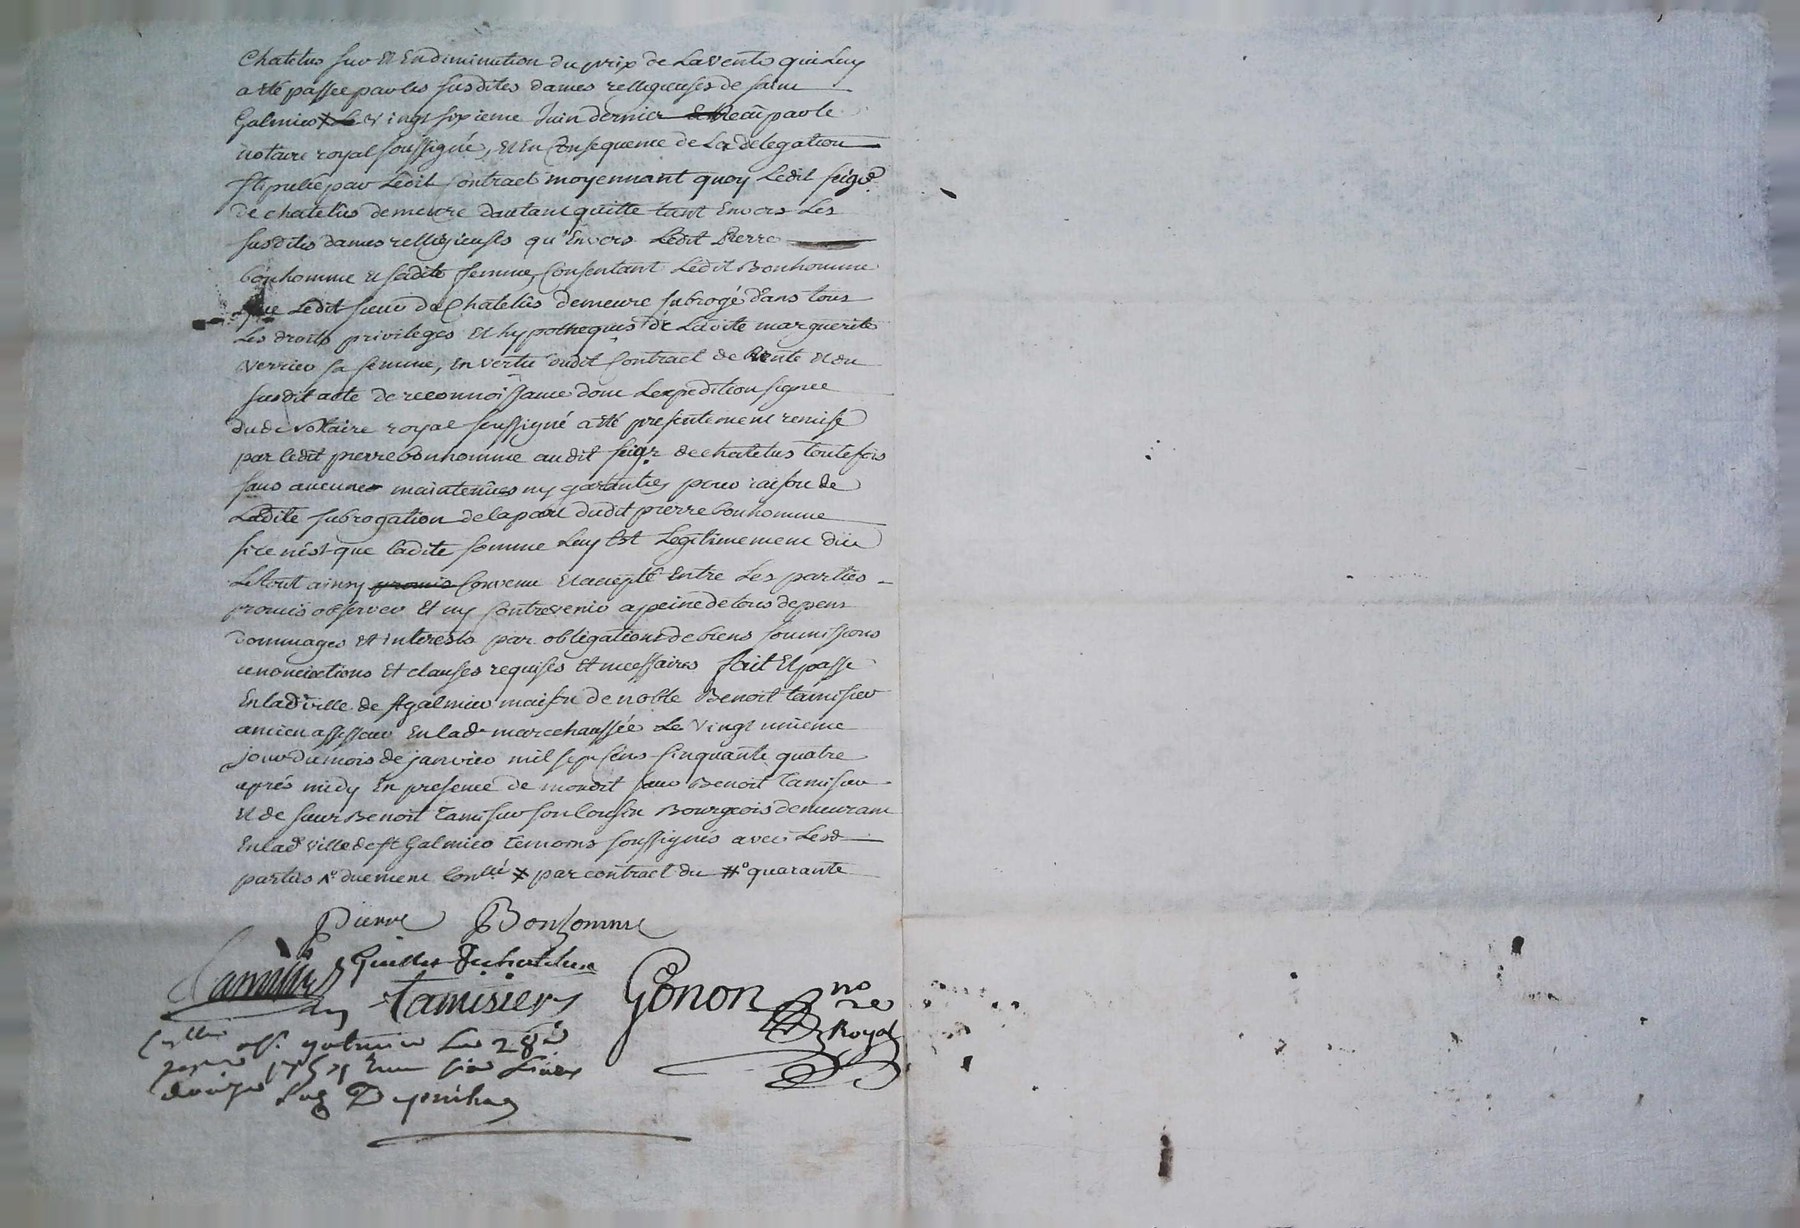 Chatelus sur et en diminution du prix de la vente qui luy
a eté passée par les susdites dames relligieuses de saint
Galmier le vingt sixieme Juin dernier et Receu par le
notaire royal soussigné, et en Consequence de La delegation
stipulée par Ledit Contract moyennant quoy Ledit seigr
de chatelûs demeure dautant quitte tant Envers Les
susdites dames relligieuses qu'Envers Ledit Pierre
bonhomme et sadite femme, Consentant Ledit Bonhomme
que Ledit sieur de Chatelûs demeure subrogé dans tous
Les droits privileges et hypotheques de Ladite marguerite
verrier sa femme, en vertu dudit Contract de vente et du
susdit acte de reconnoissance dont Lexpedition signée
dudt notaire royal soussigné a eté presentement remise
par ledit pierre bonhomme audit seigr de chatelus toutefois
sans aucunes maintenües ny garanties pour raison de
Ladite subrogation de la part dudit pierre bonhomme
si ce nést que ladite somme Luy Est Legitimement düe
Le tout ainsy promis Convenu et accepté Entre Les parties
promis observer et ny Contrevenir a peine de tous depens
dommages et interests par obligations de biens soumissions
renonciations et clauses requises et necessaires fait Et passé
En lade ville de st galmier maison de noble Benoit tamisier
ancien assesseur En lade marechaussée Le vingt unieme
jour du mois de janvier mil sept cens cinquante quatre
aprés midy En presence de mondit sieur Benoit Tamisier
et de sieur Benoit Tamisier son Cousin Bourgeois demeurant
En lade ville de st Galmier temoins soussignés avec Lesd
parties duement Contlé ✗ par contract du # quarante
Pierre Bonhomme
Guillet De chatelus
Tamisier Tamisier Gonon no
re
Royal
Contllé a st galmier Le 28e
janvier 1754 Reçu six Livres
douze sols